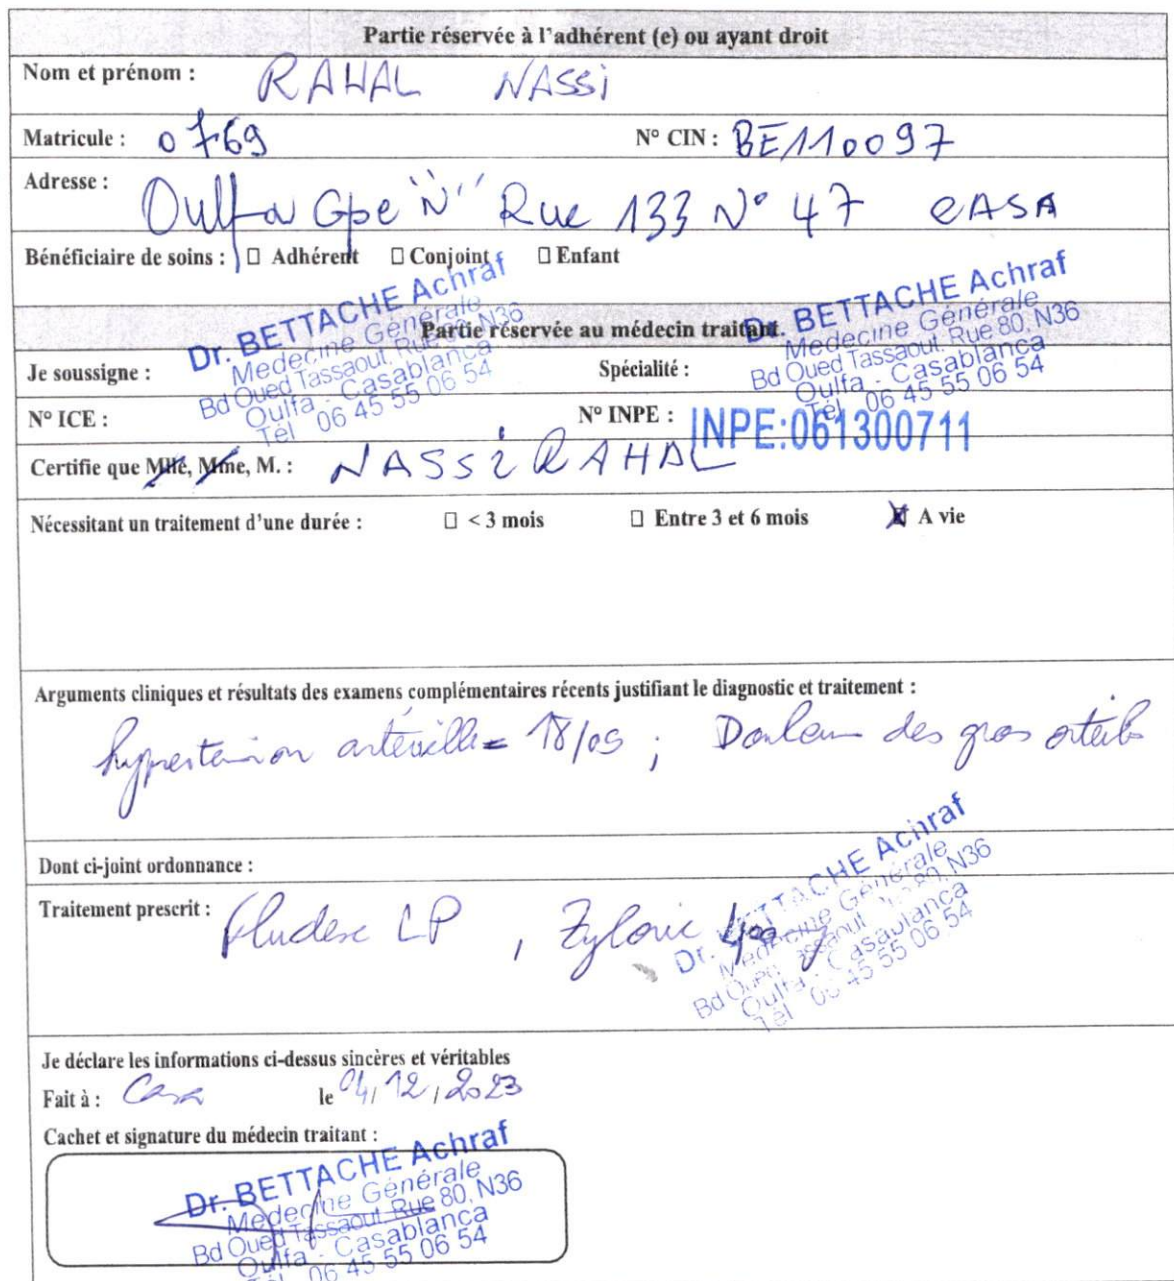 Partie réservée à l'adhérent (e) ou ayant droit
Nom et prénom : RAHAL NASSi
Matricule : 0769 N° CIN : BE110097
Adresse : Oulfa Gpe "N" Rue 133 N° 47 CASA
Bénéficiaire de soins : ☐ Adhérent ☐ Conjoint ☐ Enfant
Partie réservée au médecin traitant.
Je soussigne : Dr. BETTACHE Achraf
Medecine Générale
Bd Oued Tassaout, Rue 80, N36
Oulfa - Casablanca
Tél 06 45 55 06 54
Spécialité : Dr. BETTACHE Achraf
Medecine Générale
Bd Oued Tassaout, Rue 80, N36
Oulfa - Casablanca
Tél 06 45 55 06 54
N° ICE : N° INPE : INPE:061300711
Certifie que Mlle, Mme, M. : NASSi RAHAL
Nécessitant un traitement d'une durée : ☐ < 3 mois ☐ Entre 3 et 6 mois ☒ A vie
Arguments cliniques et résultats des examens complémentaires récents justifiant le diagnostic et traitement :
hypertension artérielle = 18/09 ; Douleur des gros orteils
Dont ci-joint ordonnance :
Traitement prescrit : Fludex LP , Zyloric
Dr. BETTACHE Achraf
Medecine Générale
Bd Oued Tassaout, Rue 80, N36
Oulfa - Casablanca
Tél 06 45 55 06 54
Je déclare les informations ci-dessus sincères et véritables
Fait à : Casa le 04/12/2023
Cachet et signature du médecin traitant :
Dr. BETTACHE Achraf
Medecine Générale
Bd Oued Tassaout, Rue 80, N36
Oulfa - Casablanca
Tél 06 45 55 06 54